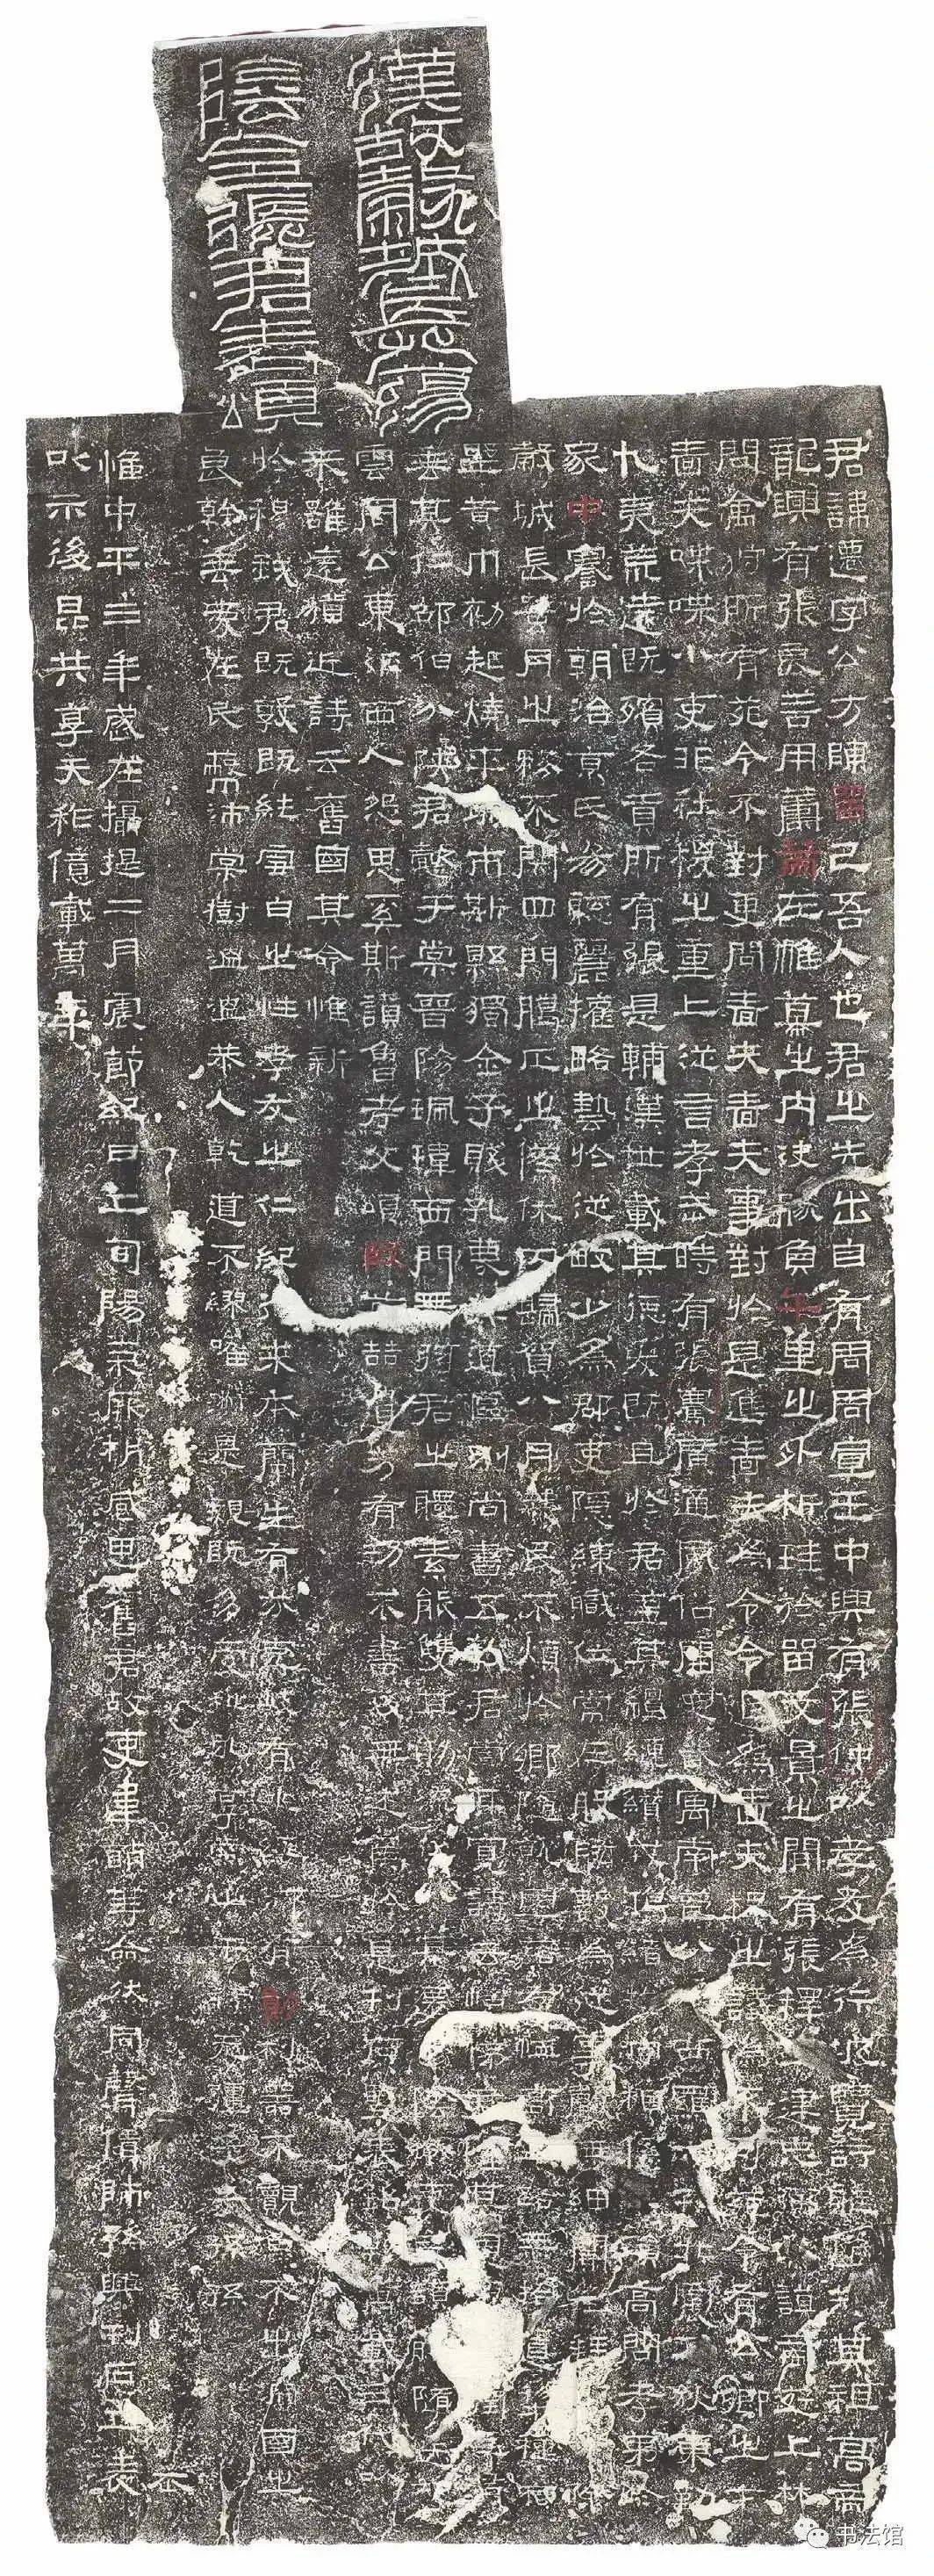 漢故穀城長蕩
陰令張君表頌
君諱遷字公方陳留己吾人也君之先出自有周周宣王中興有張仲以孝友為行披覽詩雅煥知其祖高帝
龍興有張良善用籌策在帷幕之內決勝負千里之外析珪於留文景之間有張釋之建忠弼之謨帝遊上林
問禽狩所有苑令不對更問嗇夫嗇夫事對於是進嗇夫為令令退為嗇夫釋之議為不可苑令有公卿之才
嗇夫喋喋小吏非社稷之重上從言孝武時有張騫廣通風俗開定畿寓南苞八蠻西羈六戎北震五狄東勤
九夷荒遠既殯各貢所有張是輔漢世載其德爰既且於君蓋其繵縺纘戎鴻緒牧守相係不殞高問孝弟於
家中謇於朝治京氏易聰麗權略藝於從畋少為郡吏隱練職位常在股肱數為從事聲無細聞徵拜郎中除
穀城長蠶月之務不閉四門臘正之僚休囚歸賀八月算民不煩於鄉隨就虛落存恤高年路無拾遺犁種宿
野黃巾初起燒平城市斯縣獨全子賤孔蔑其道區別尚書五教君崇其寬詩云愷悌君隆其恩東里潤色君
垂其仁邵伯分陝君懿于棠晉陽珮瑋西門帶弦君之體素能雙其勛流化八基遷蕩陰令吏民頡頏隨送如
雲周公東征西人怨思奚斯讚魯考父頌殷前喆遺芳有功不書後無述焉於是刊石豎表銘勒萬載三代以
來雖遠猶近詩云舊國其命惟新
於穆我君既敦既純雪白之性孝友之仁紀行來本蘭生有芬克岐有兆綏御有勛利器不覿魚不出淵國之
良幹垂愛在民蔽沛棠樹溫溫恭人乾道不繆唯淑是親既多受祉永享南山干祿無疆子子孫孫
惟中平三年歲在攝提二月震節紀日上旬陽氣厥析感思舊君故吏韋萌等僉然同聲賃師孫興刊石立表
以示後昆共享天祚億載萬年
书法馆